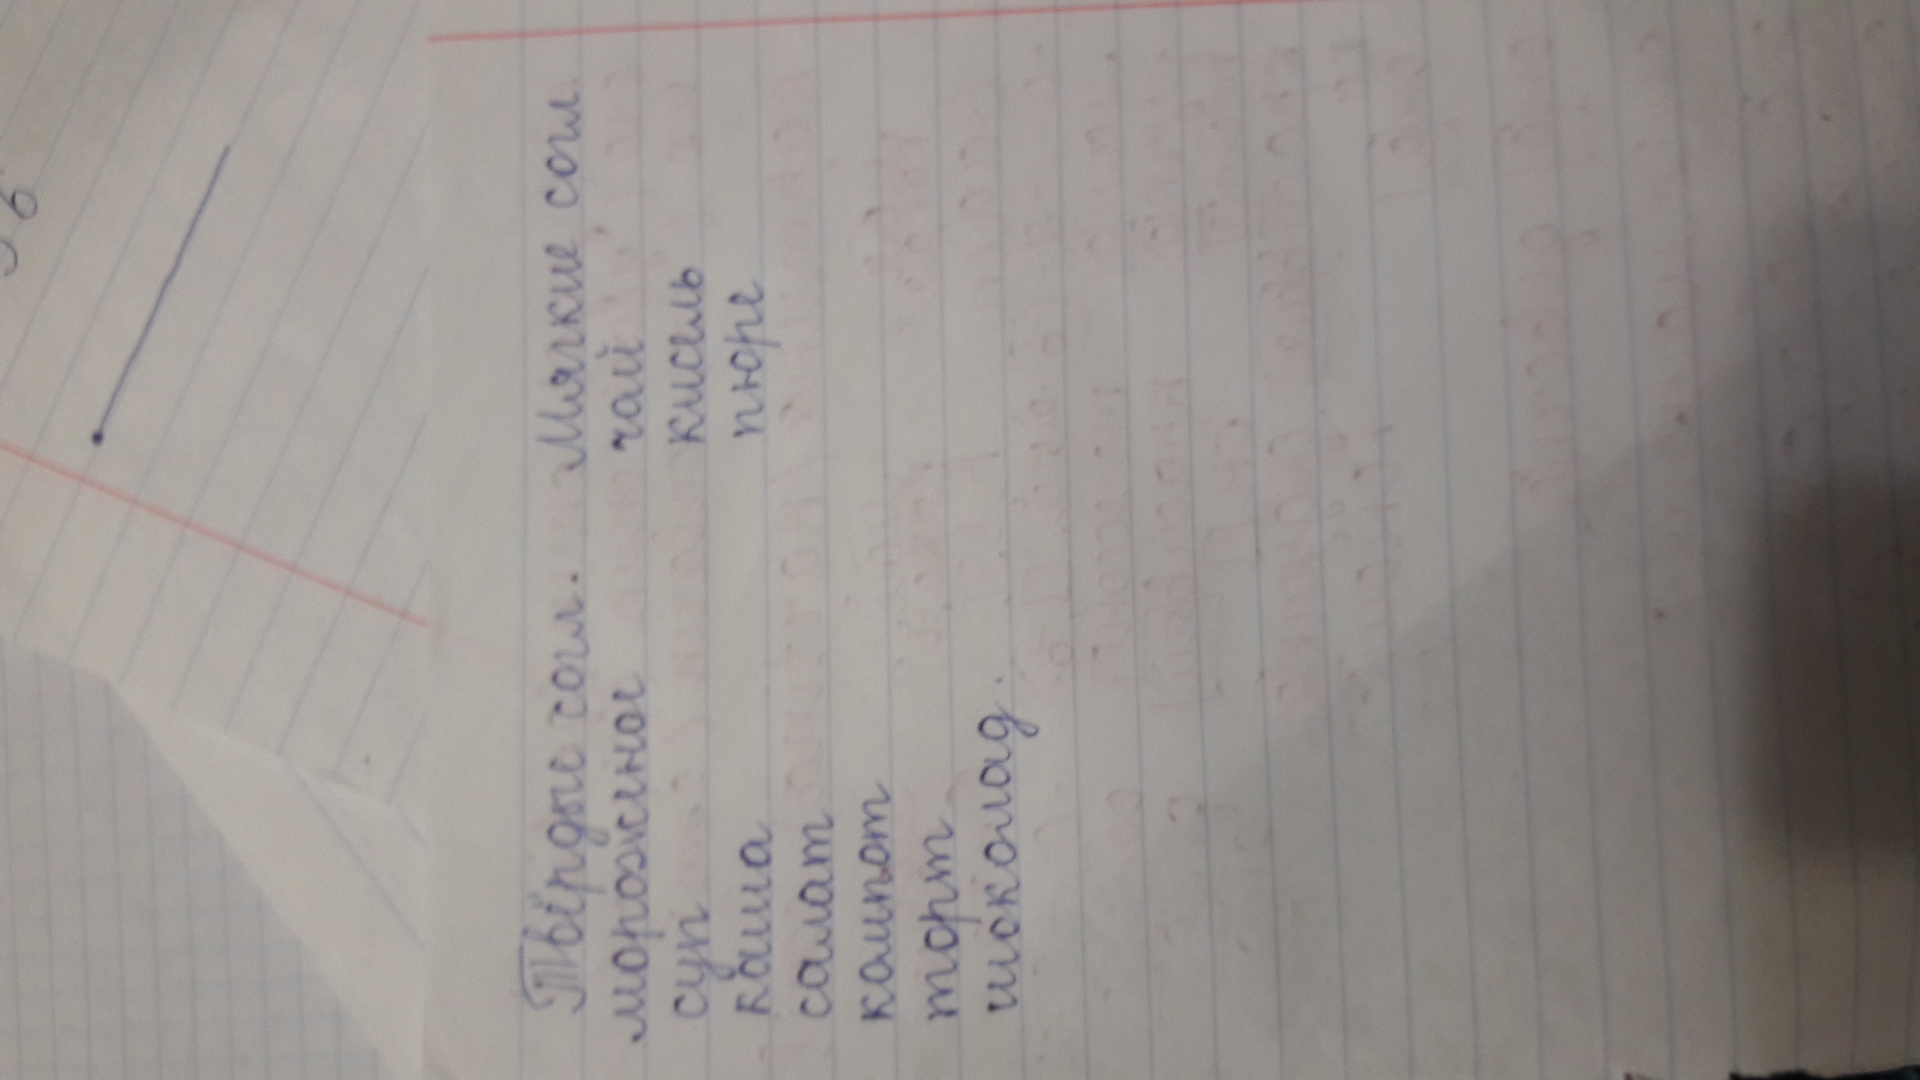 Твёрдые согл. Мягкие согл.
мороженое чай
суп кисель
каша пюре
салат
компот
торт
шоколад.